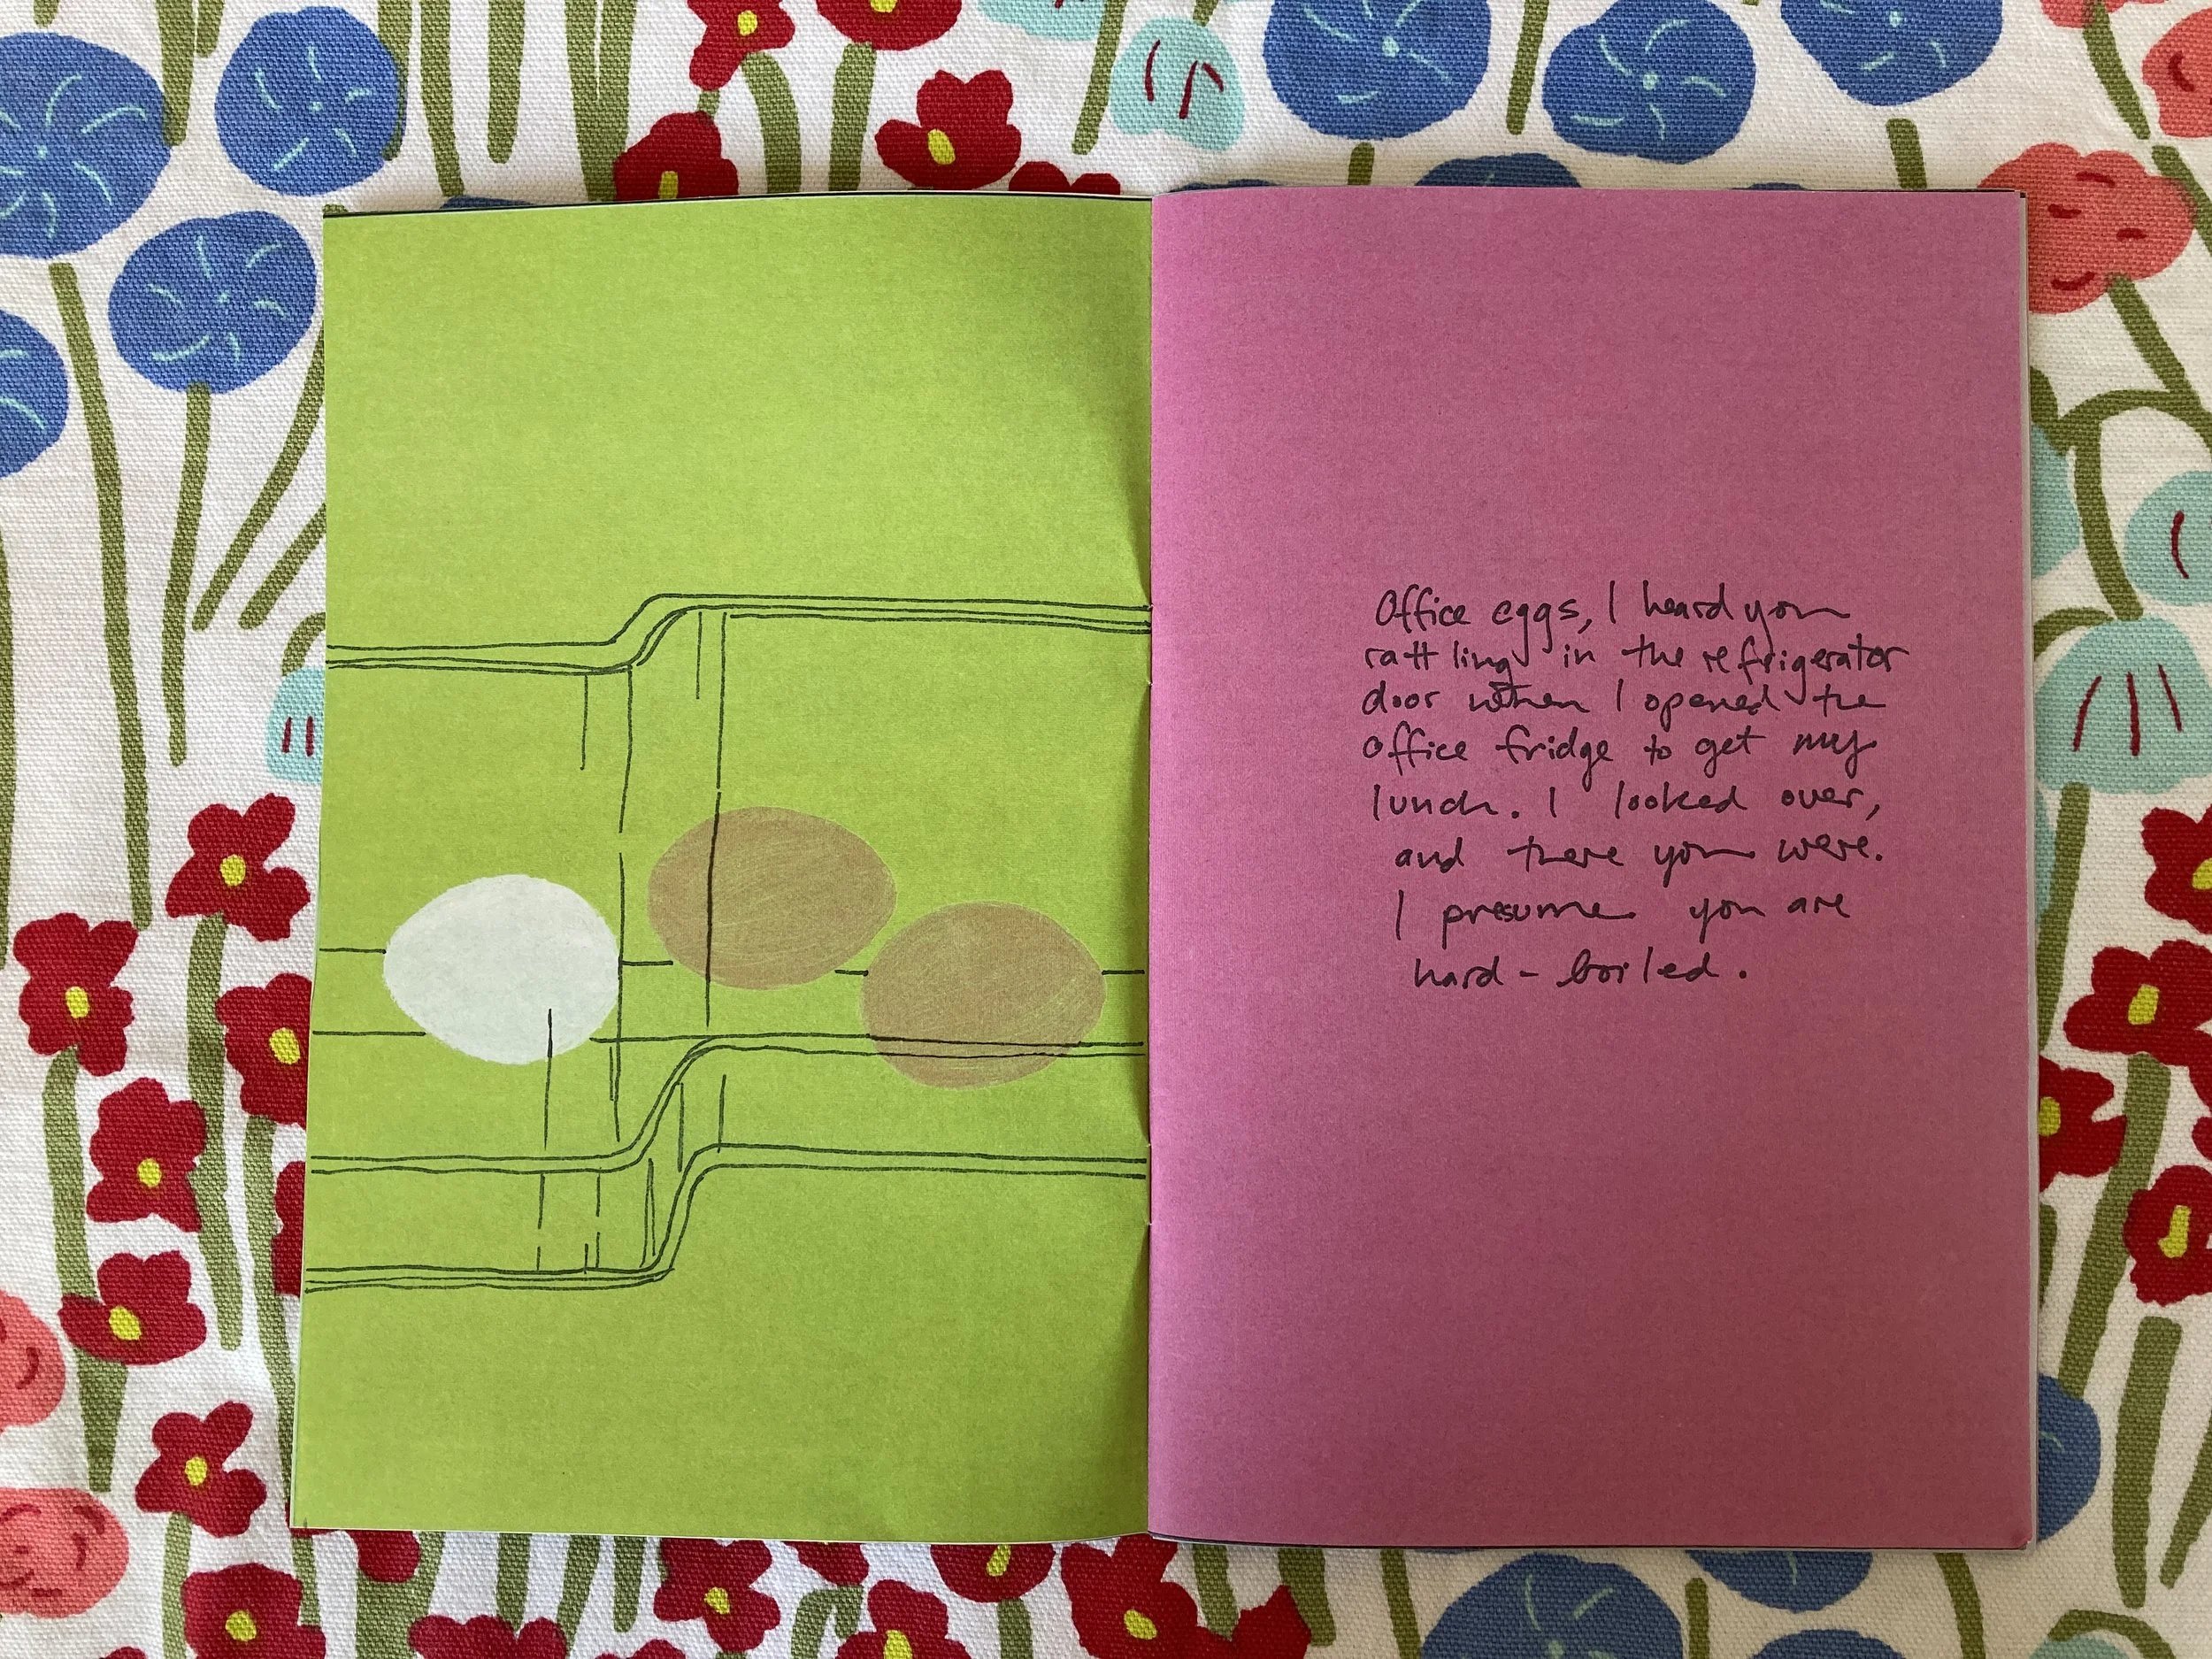 Office eggs, I heard you
rattling in the refrigerator
door when I opened the
office fridge to get my
lunch. I looked over,
and there you were.
I presume you are
hard-boiled.